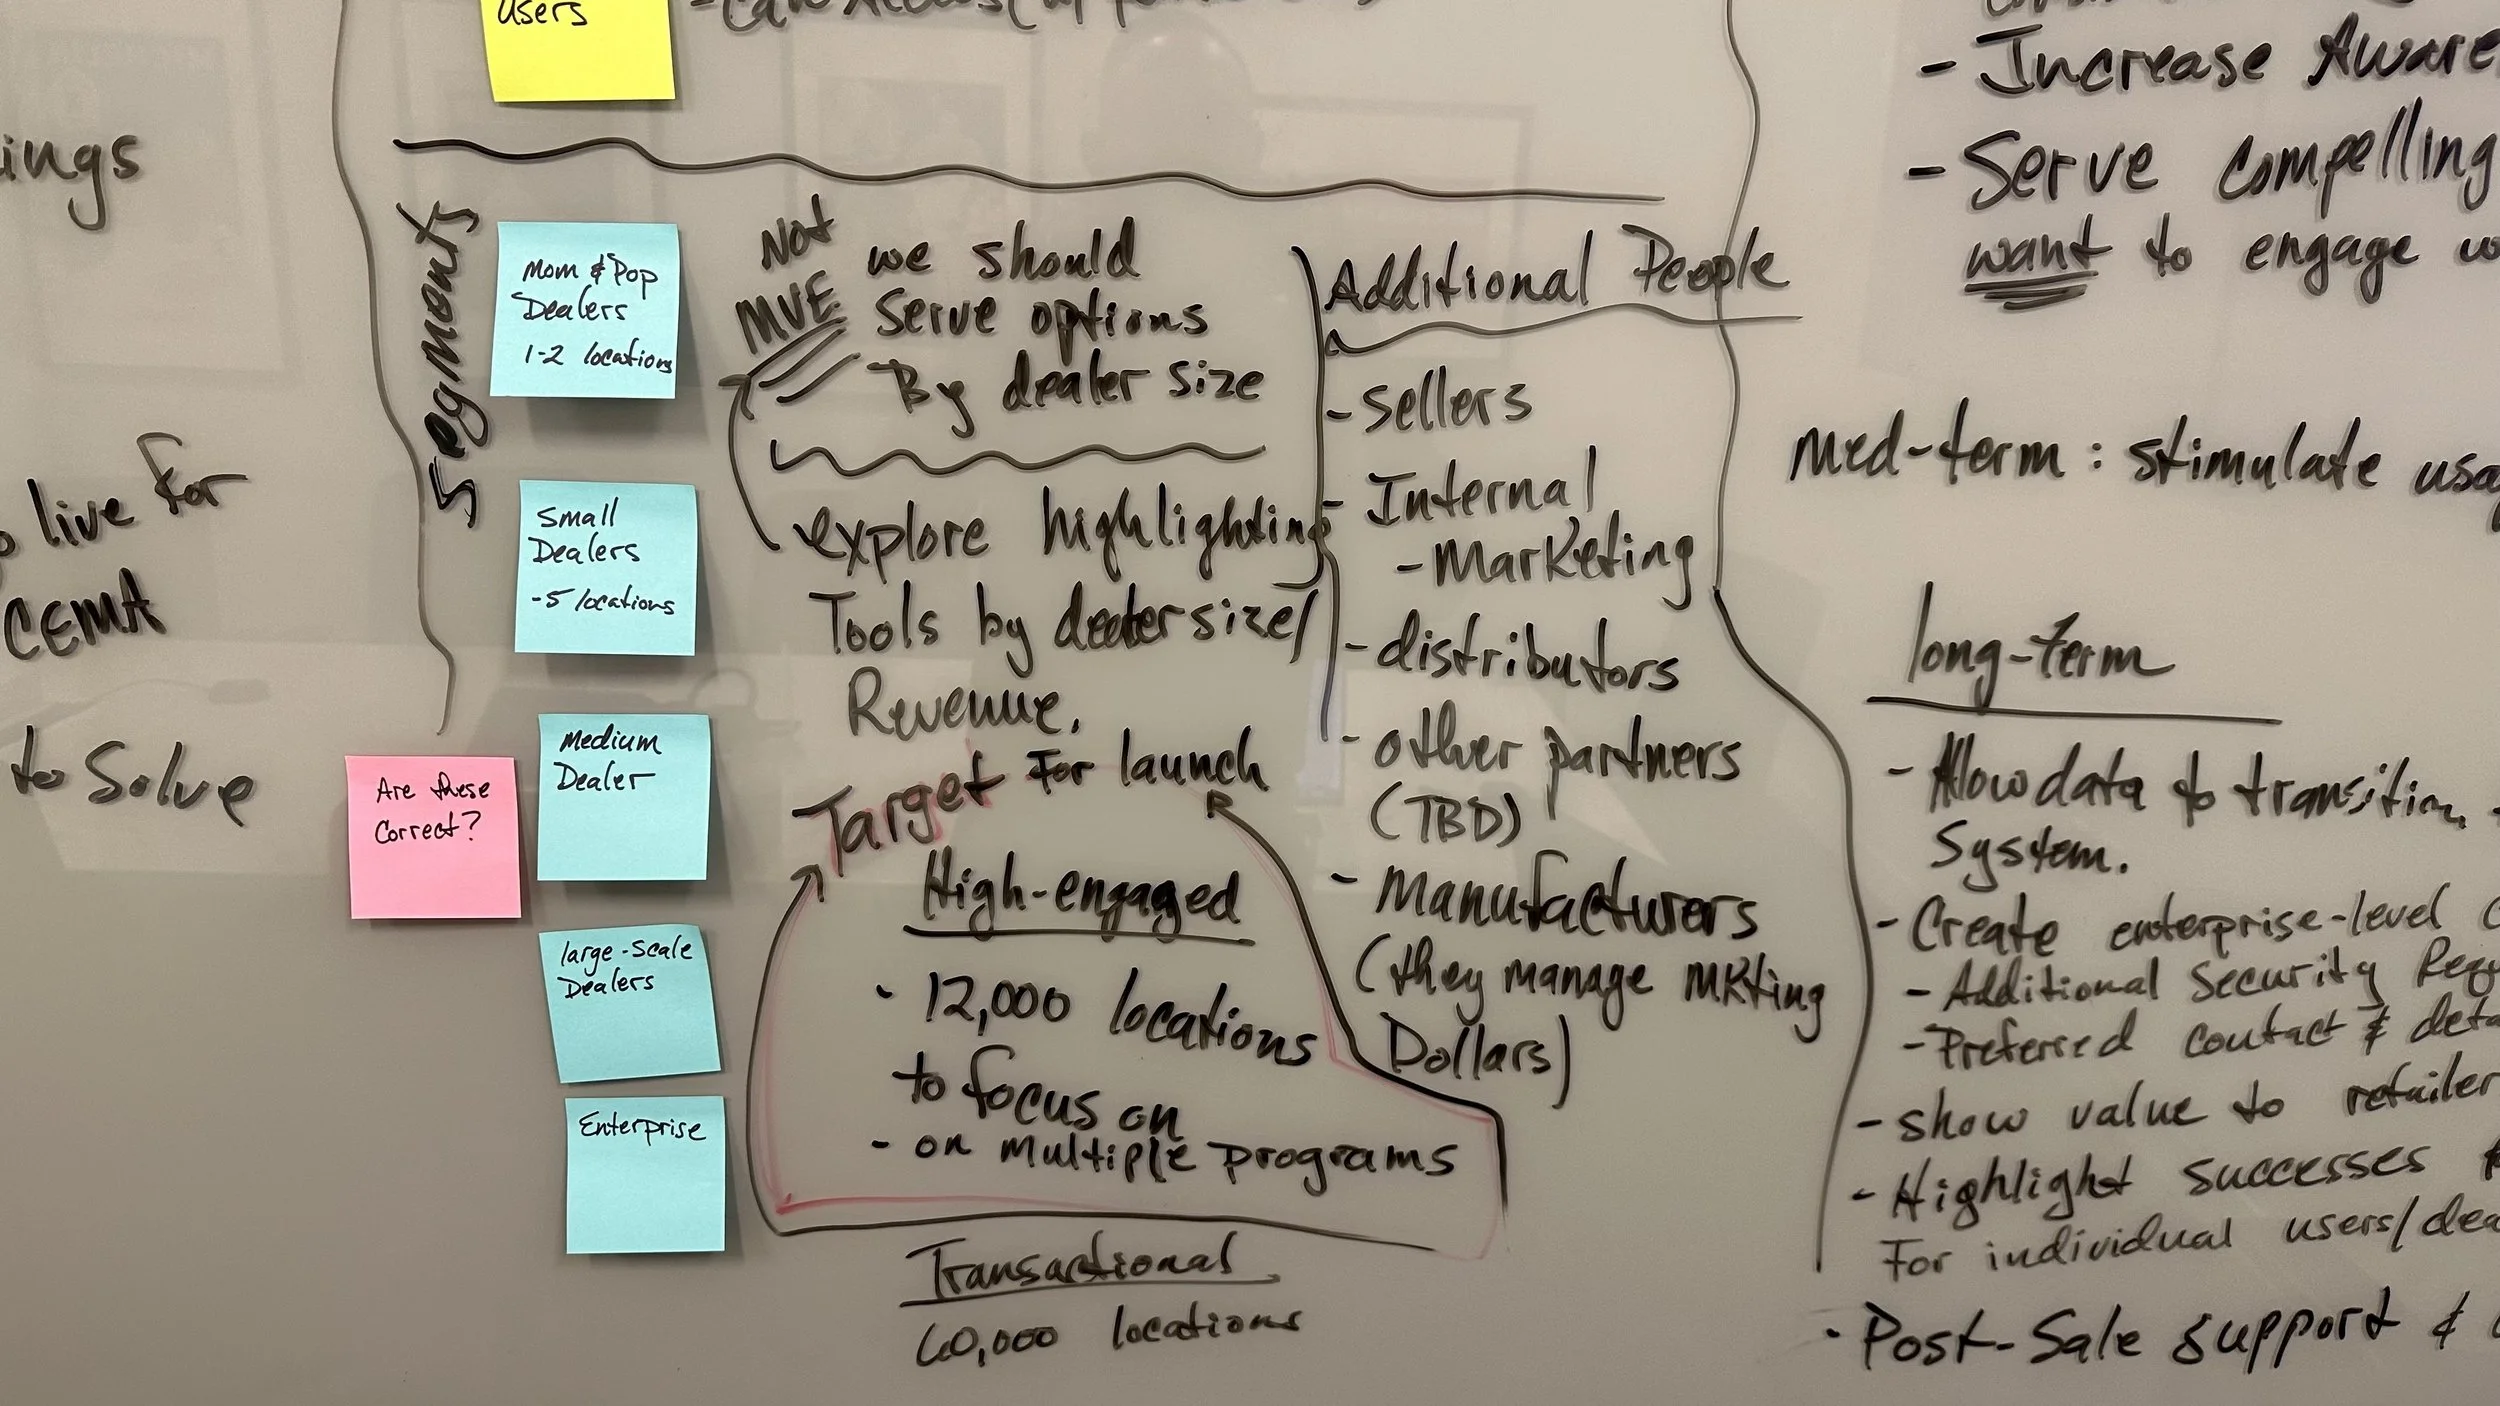 users
ings
live for
CEMA
to Solve
Segments
Mom & Pop
Dealers
1-2 locations
Small
Dealers
-5 locations
Medium
Dealer
Are these
Correct?
large-scale
Dealers
Enterprise
Not
MVE
we should
serve options
By dealer size
explore highlighting
Tools by dealer size/
Revenue.
Target for launch
High-engaged
· 12,000 locations
to focus on
- on multiple programs
Transactional
60,000 locations
Additional People
- sellers
- Internal
- Marketing
- distributors
- other partners
(TBD)
- Manufacturers
(they manage MKting
Dollars)
- Increase Aware
- Serve compelling
want to engage
med-term: stimulate usa
long-term
- Allow data to transition
System.
- Create enterprise-level
- Additional Security Requ
- Preferred contact & deta
- show value to retailer
- Highlight successes
For individual users/dea
· Post-Sale support &